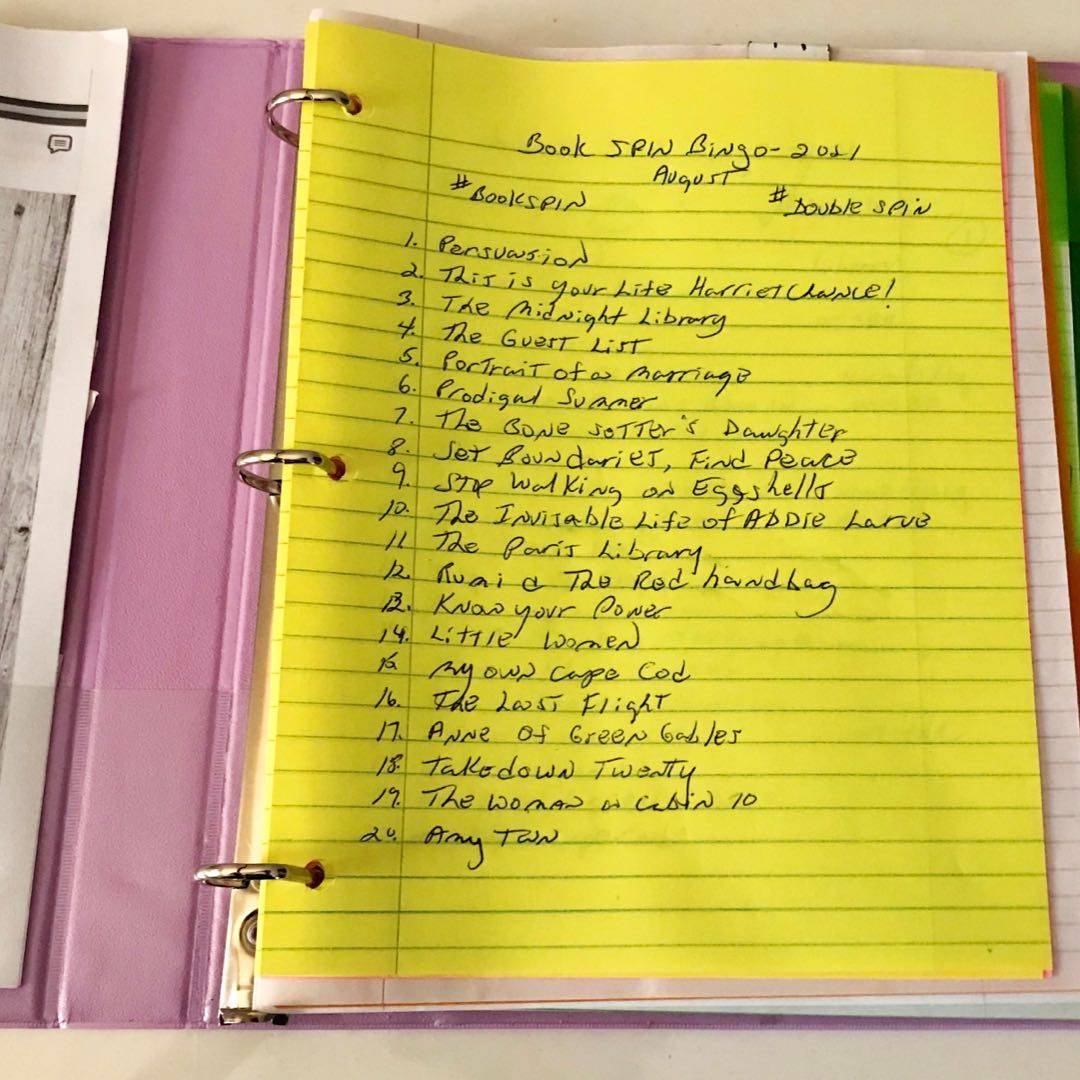 Book SPIN Bingo - 2021
August
#BookSPIN #Double SPIN
1. Persuasion
2. This is your Life Harriet Chance!
3. The Midnight Library
4. The Guest List
5. Portrait of a Marriage
6. Prodigal Summer
7. The Bone Setter's Daughter
8. Set Boundaries, Find Peace
9. Stop Walking on Eggshells
10. The Invisable Life of Addie Larue
11. The Paris Library
12. Rumi & The Red handbag
13. Know your Power
14. Little Women
15. My own Cape Cod
16. The Last Flight
17. Anne Of Green Gables
18. Takedown Twenty
19. The Woman in Cabin 10
20. Amy Tan